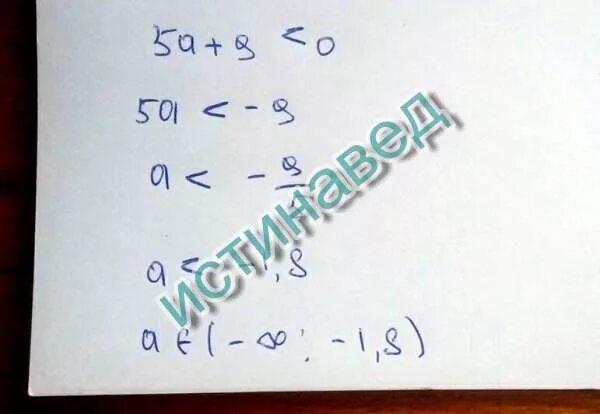 5a + 9 < 0
5a < - 9
a < - 9/5
a < -1,8
a ∈ (- ∞ ; -1,8)
истинавед